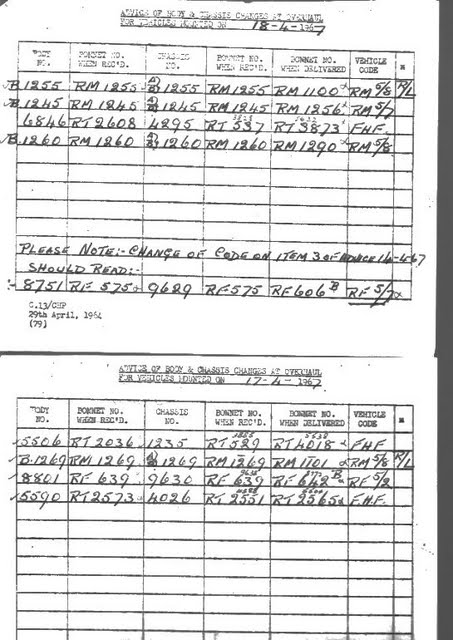 ADVICE OF BODY & CHASSIS CHANGES AT OVERHAUL
FOR VEHICLES MOUNTED ON 18-4-1967
BODY NO. BONNET NO. WHEN REC'D. CHASSIS NO. BONNET NO. WHEN REC'D. BONNET NO. WHEN DELIVERED VEHICLE CODE
B1255 RM 1255 1255 RM1255 RM 1100 RM 5/8 R/1
B1245 RM 1245 1245 RM1245 RM 1256 RM 5/7
6846 RT 2608 4295 RT 537 RT 3873 F.H.F.
B1260 RM 1260 1260 RM 1260 RM 1290 RM 5/8
PLEASE NOTE:- CHANGE OF CODE ON ITEM 3 OF ADVICE 14-4-67
SHOULD READ:-
8751 RF 575 9629 RF 575 RF 606 B RF 5/7
C.13/CHP
29th April, 1964
(79)
ADVICE OF BODY & CHASSIS CHANGES AT OVERHAUL
FOR VEHICLES MOUNTED ON 17-4-1967
BODY NO. BONNET NO. WHEN REC'D. CHASSIS NO. BONNET NO. WHEN REC'D. BONNET NO. WHEN DELIVERED VEHICLE CODE
5506 RT 2036 1235 RT 529 RT 4018 FHF
B.1269 RM 1269 1269 RM 1269 RM 1101 RM 5/8 R/1
8801 RF 639 9630 RF 639 RF 642 B RF 5/2
5590 RT 2573 4026 RT 2551 RT 2565 F.H.F.